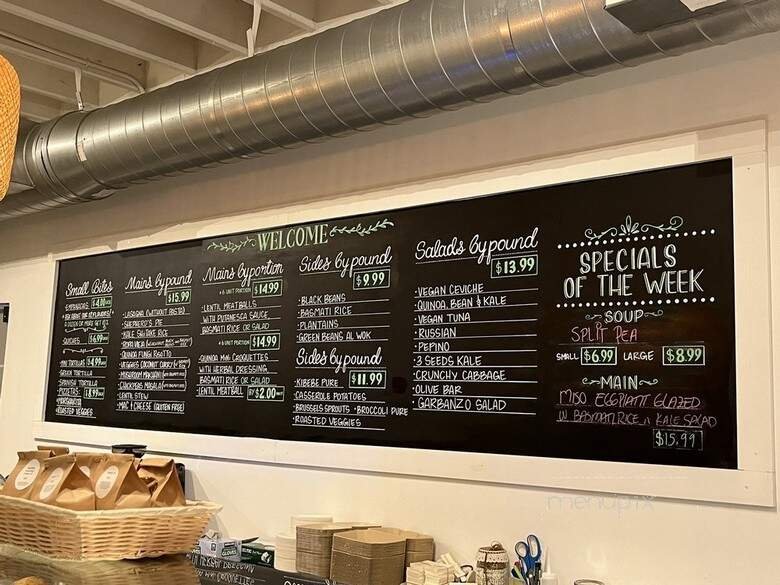 WELCOME
Small Bites
EMPANADAS $4.00
QUICHES $6.99
MINI TORTILLAS $4.99
GREEK TORTILLA
SPANISH TORTILLA
PIZZETAS $8.99
MARGHARITA
ROASTED VEGGIES
Mains by pound
$15.99
LASAGNA (WITHOUT PASTA)
SHEPHERD'S PIE
QUINOA FUNGI RISOTTO
VEGGIES COCONUT CURRY
MUSHROOM
CHICKPEAS MASALA
LENTIL STEW
MAC & CHEESE (GLUTEN FREE)
Mains by portion
·6 UNIT PORTION $14.99
LENTIL MEATBALLS
WITH PUTANESCA SAUCE
BASMATI RICE OR SALAD
·6 UNIT PORTION $14.99
QUINOA MINI CROQUETTES
WITH HERBAL DRESSING
BASMATI RICE OR SALAD
·LENTIL MEATBALL BY UNIT $2.00
Sides by pound
$9.99
·BLACK BEANS
·BASMATI RICE
·PLANTAINS
·GREEN BEANS AL WOK
Sides by pound
$11.99
·KIBEBE PURE
·CASSEROLE POTATOES
·BRUSSELS SPROUTS ·BROCCOLI PURE
·ROASTED VEGGIES
Salads by pound
$13.99
·VEGAN CEVICHE
·QUINOA, BEAN & KALE
·VEGAN TUNA
·RUSSIAN
·PEPINO
·3 SEEDS KALE
·CRUNCHY CABBAGE
·OLIVE BAR
·GARBANZO SALAD
SPECIALS
OF THE WEEK
SOUP
SPLIT PEA
SMALL $6.99 LARGE $8.99
MAIN
MISO EGGPLANT GLAZED
W BASMATI RICE N KALE SALAD
$15.99
menupix